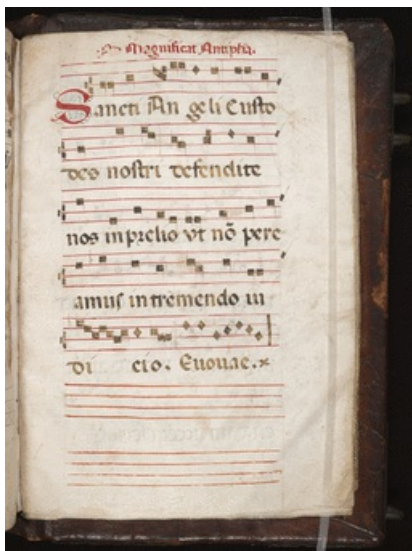 Magnificat Antipha.
Sancti An geli Custo
des nostri defendite
nos in prelio vt nõ pere
amus in tremendo iu
di cio. Euouae.